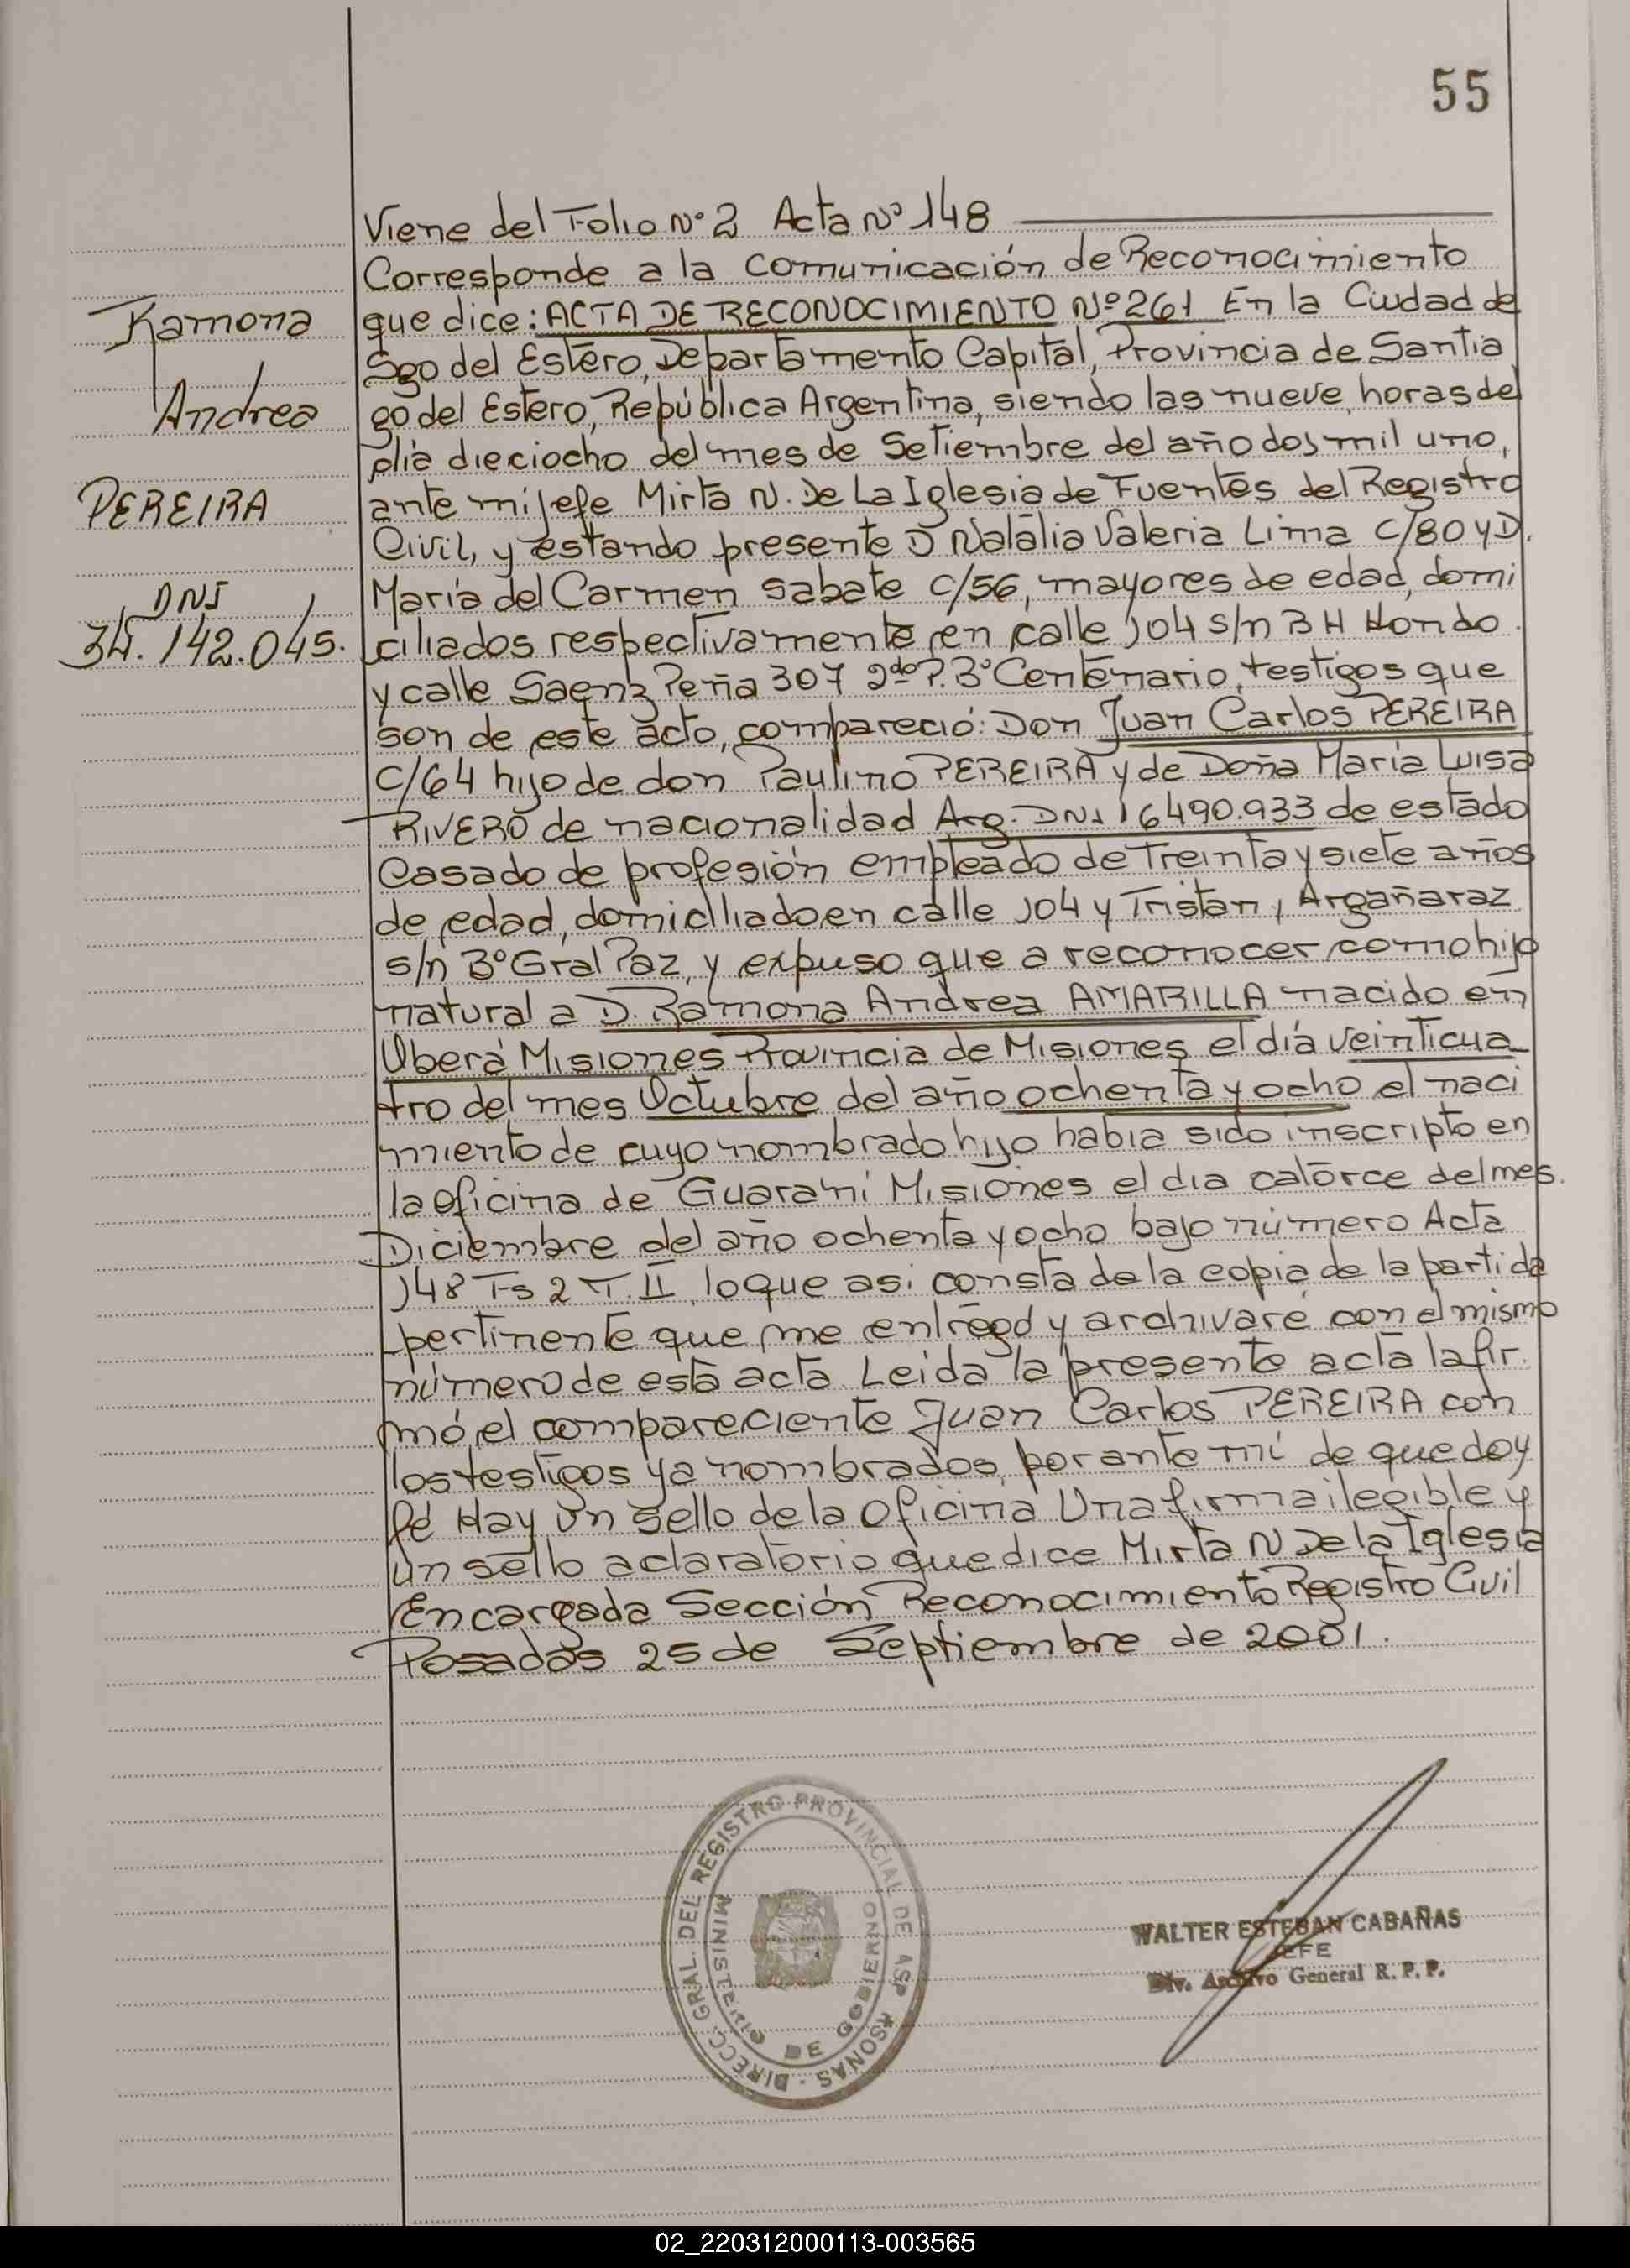 55
Viene del Folio Nº 2 Acta Nº 148
Corresponde a la comunicación de Reconocimiento
que dice: ACTA DE RECONOCIMIENTO Nº 261 En la Ciudad de
Sgo del Estero, Departamento Capital, Provincia de Santia
go del Estero, República Argentina, siendo las nueve horas del
día dieciocho del mes de Setiembre del año dos mil uno,
ante mi jefe Mirta N. De La Iglesia de Fuentes del Registro
Civil, y estando presente D Natalia Valeria Lima C/80 y D.
María del Carmen Sabate C/56, mayores de edad, domi
ciliados respectivamente en calle 104 s/n B H Hondo
y calle Saenz Peña 307 2do P. Bº Centenario, testigos que
son de este acto, compareció: Don Juan Carlos PEREIRA
C/64 hijo de don Paulino PEREIRA y de Doña María Luisa
RIVERO de nacionalidad Arg. DNI 16490.933 de estado
Casado de profesión empleado de Treinta y siete años
de edad, domiclliado en calle 104 y Tristan, Argañaraz
s/n Bº Gral Paz, y expuso que a reconocer como hijo
natural a D. Ramona Andrea AMARILLA nacido en
Oberá Misiones Provincia de Misiones el día veinticua
tro del mes Octubre del año ochenta y ocho el naci
miento de cuyo nombrado hijo había sido inscripto en
la oficina de Guaraní Misiones el día catorce del mes
Diciembre del año ochenta y ocho bajo número Acta
148 Fs 2 T. II lo que asi consta de la copia de la partida
pertinente que me entregó y archivaré con el mismo
número de esta acta Leida la presente acta la fir
mó el compareciente Juan Carlos PEREIRA con
los testigos ya nombrados, por ante mí de que doy
fé Hay un sello de la oficina Una firma ilegible y
un sello aclaratorio que dice Mirta N De la Iglesia
Encargada Sección Reconocimiento Registro Civil
Posadas 25 de Septiembre de 2001.
Ramona
Andrea
PEREIRA
DNI
34.142.045.
DIRECC. GRAL. DEL REGISTRO PROVINCIAL DE
MINISTERIO DE GOBIERNO
WALTER ESTEBAN CABAÑAS
JEFE
Div. Archivo General R. P. P.
02_220312000113-003565